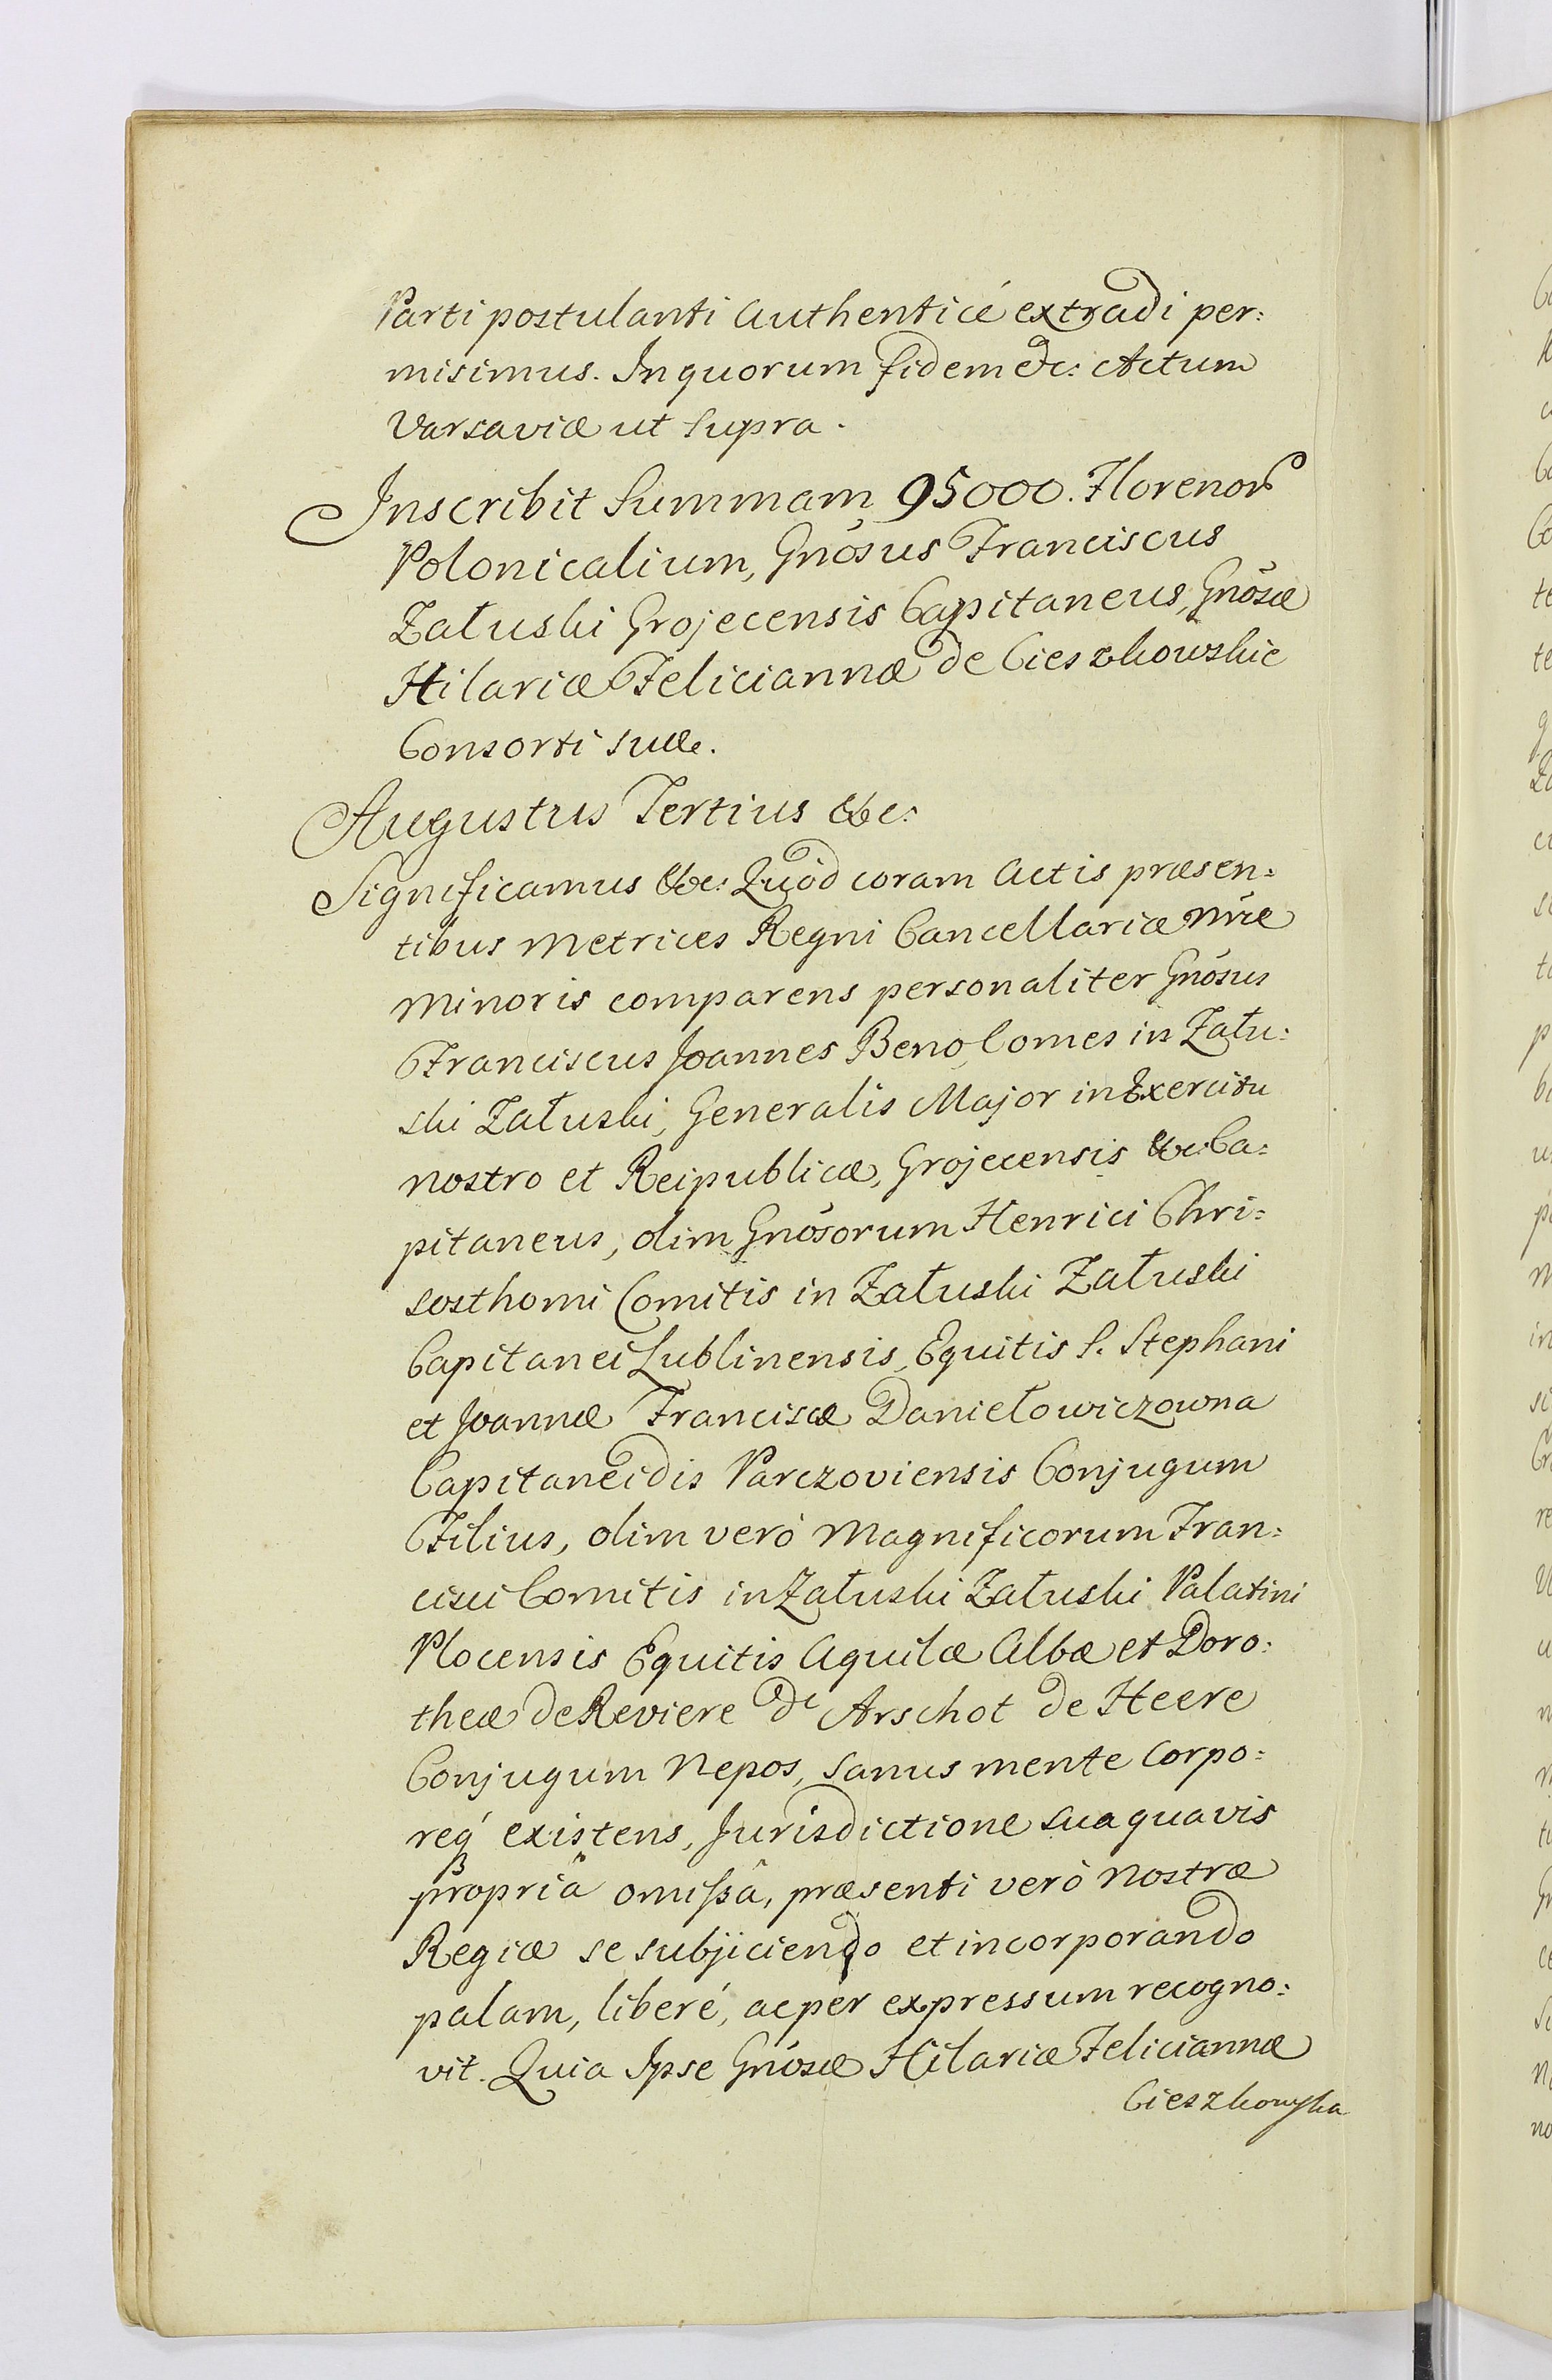 Parti postulanti Authenticé extradi per:
misimus. In quorum fidem &c: Actum
Varsaviæ ut Supra.
Inscribit Summam 95000. Florenor
Polonicalium, Gnósus Franciscus
Załuski Grojecensis Capitaneus, Gnósæ
Hilariæ Feliciannæ de Cieszkowskie
Consorti suæ.
Augustus Tertius &c:
Significamus &c: Quód coram Actis præsen:
tibus Metrices Regni Cancellariæ Nræ
Minoris comparens personaliter Gnósus
Franciscus Joannes Beno, Comes in Zału:
ski Załuski, Generalis Major in Exercitu
nostro et Reipublicæ, Grojecensis &c: Ca:
pitaneus, olim Gnósorum Henrici Chri:
sosthomi Comitis in Załuski Załuski
Capitanei Lublinensis, Equitis S. Stephani
et Joannæ Franciscæ Daniełowiczowna
Capitaneidis Parczoviensis Conjugum
Filius, olim veró Magnificorum Fran:
cisci Comitis in Załuski Załuski Palatini
Plocensis Equitis Aquilæ Albæ et Doro:
theæ de Reviere d' Arschot de Heere
Conjugum Nepos, sanus mente Corpo:
req́ existens, Jurisdictione sua quavis
propriâ omissâ, præsenti veró Nostræ
Regiæ se subjiciendo et incorporando
palam, liberé, ac per expressum recogno:
vit. Quia Ipse Gnósæ Hilariæ Feliciannæ
Cieszkowska